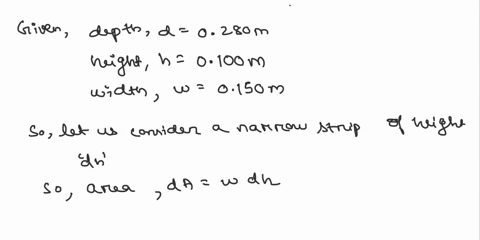 Given, depth, d = 0.280m
height, h = 0.100m
width, w = 0.150m
So, let us consider a narrow strip of height
'dh'
So, area, dA = w dh